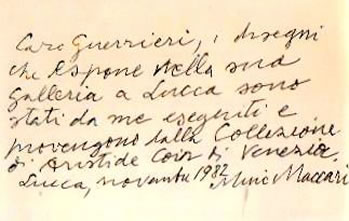 Caro Guerrieri, i disegni
che espone nella sua
galleria a Lucca sono
stati da me eseguiti e
provengono dalla Collezione
di Aristide Coin di Venezia.
Lucca, novembre 1982 Mino Maccari